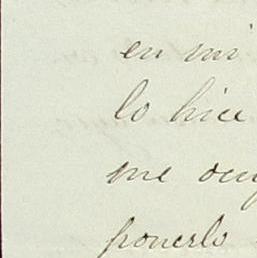 en mi
lo hice
me ocu
ponerlo